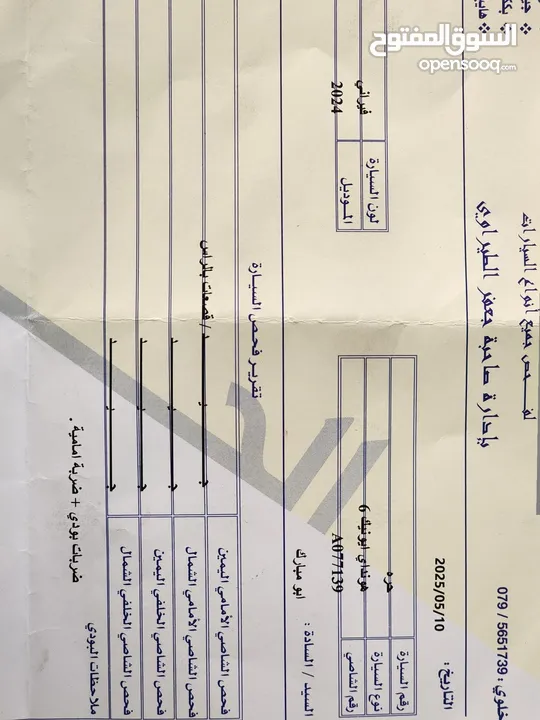 السوق المفتوح
opensooq.com
لفحص جميع أنواع السيارات
بإدارة صاحبة جعفر الطيراوي
خلوي : 079 / 5651739
التاريخ : 2025/05/10
رقم السيارة حره
نوع السيارة هونداي ايونيك 6
رقم الشاصي A077139
لون السيارة فيراني
الموديل 2024
السيد / السادة : ابو مبارك
تقرير فحص السيارة
فحص الشاصي الأمامي اليمين جـــيـــد / قصعات بالراس
فحص الشاصي الأمامي الشمال جـــيـــد
فحص الشاصي الخلفي اليمين جـــيـــد
فحص الشاصي الخلفي الشمال جـــيـــد
ملاحظات البودي
ضربات بودي + ضربة امامية .